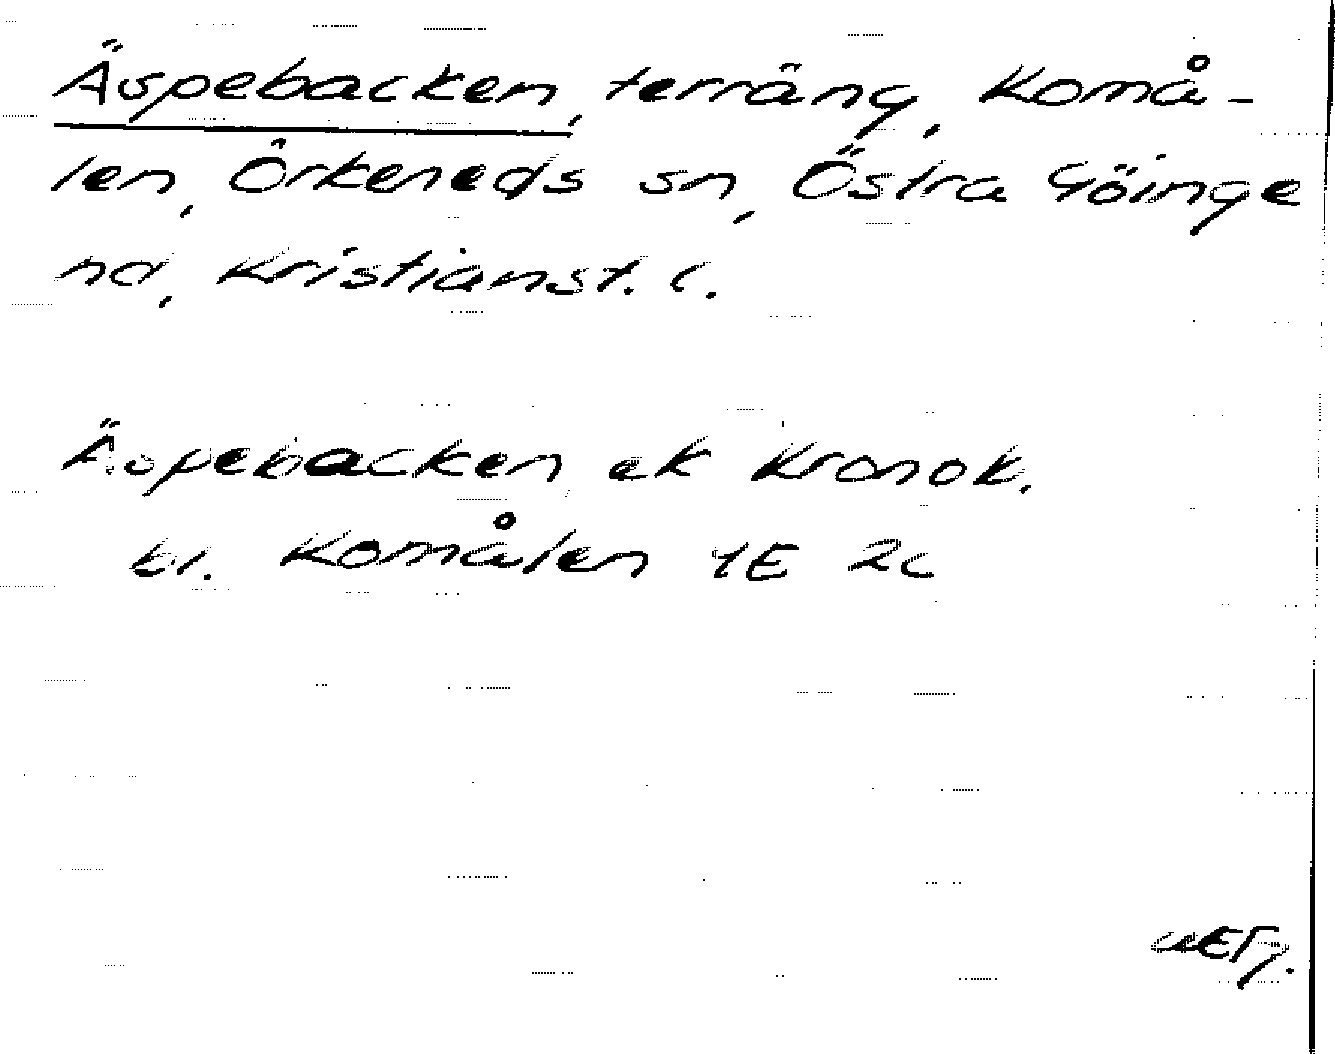 Äspebacken, terräng, Komå-
len, Örkeneds sn, Östra Göinge
hd, Kristianst. l.
Äspebacken ek Kronok.
bl. Komålen 4E 2c